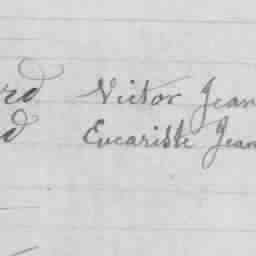 rd Victor Jean
d Eucariste Jean